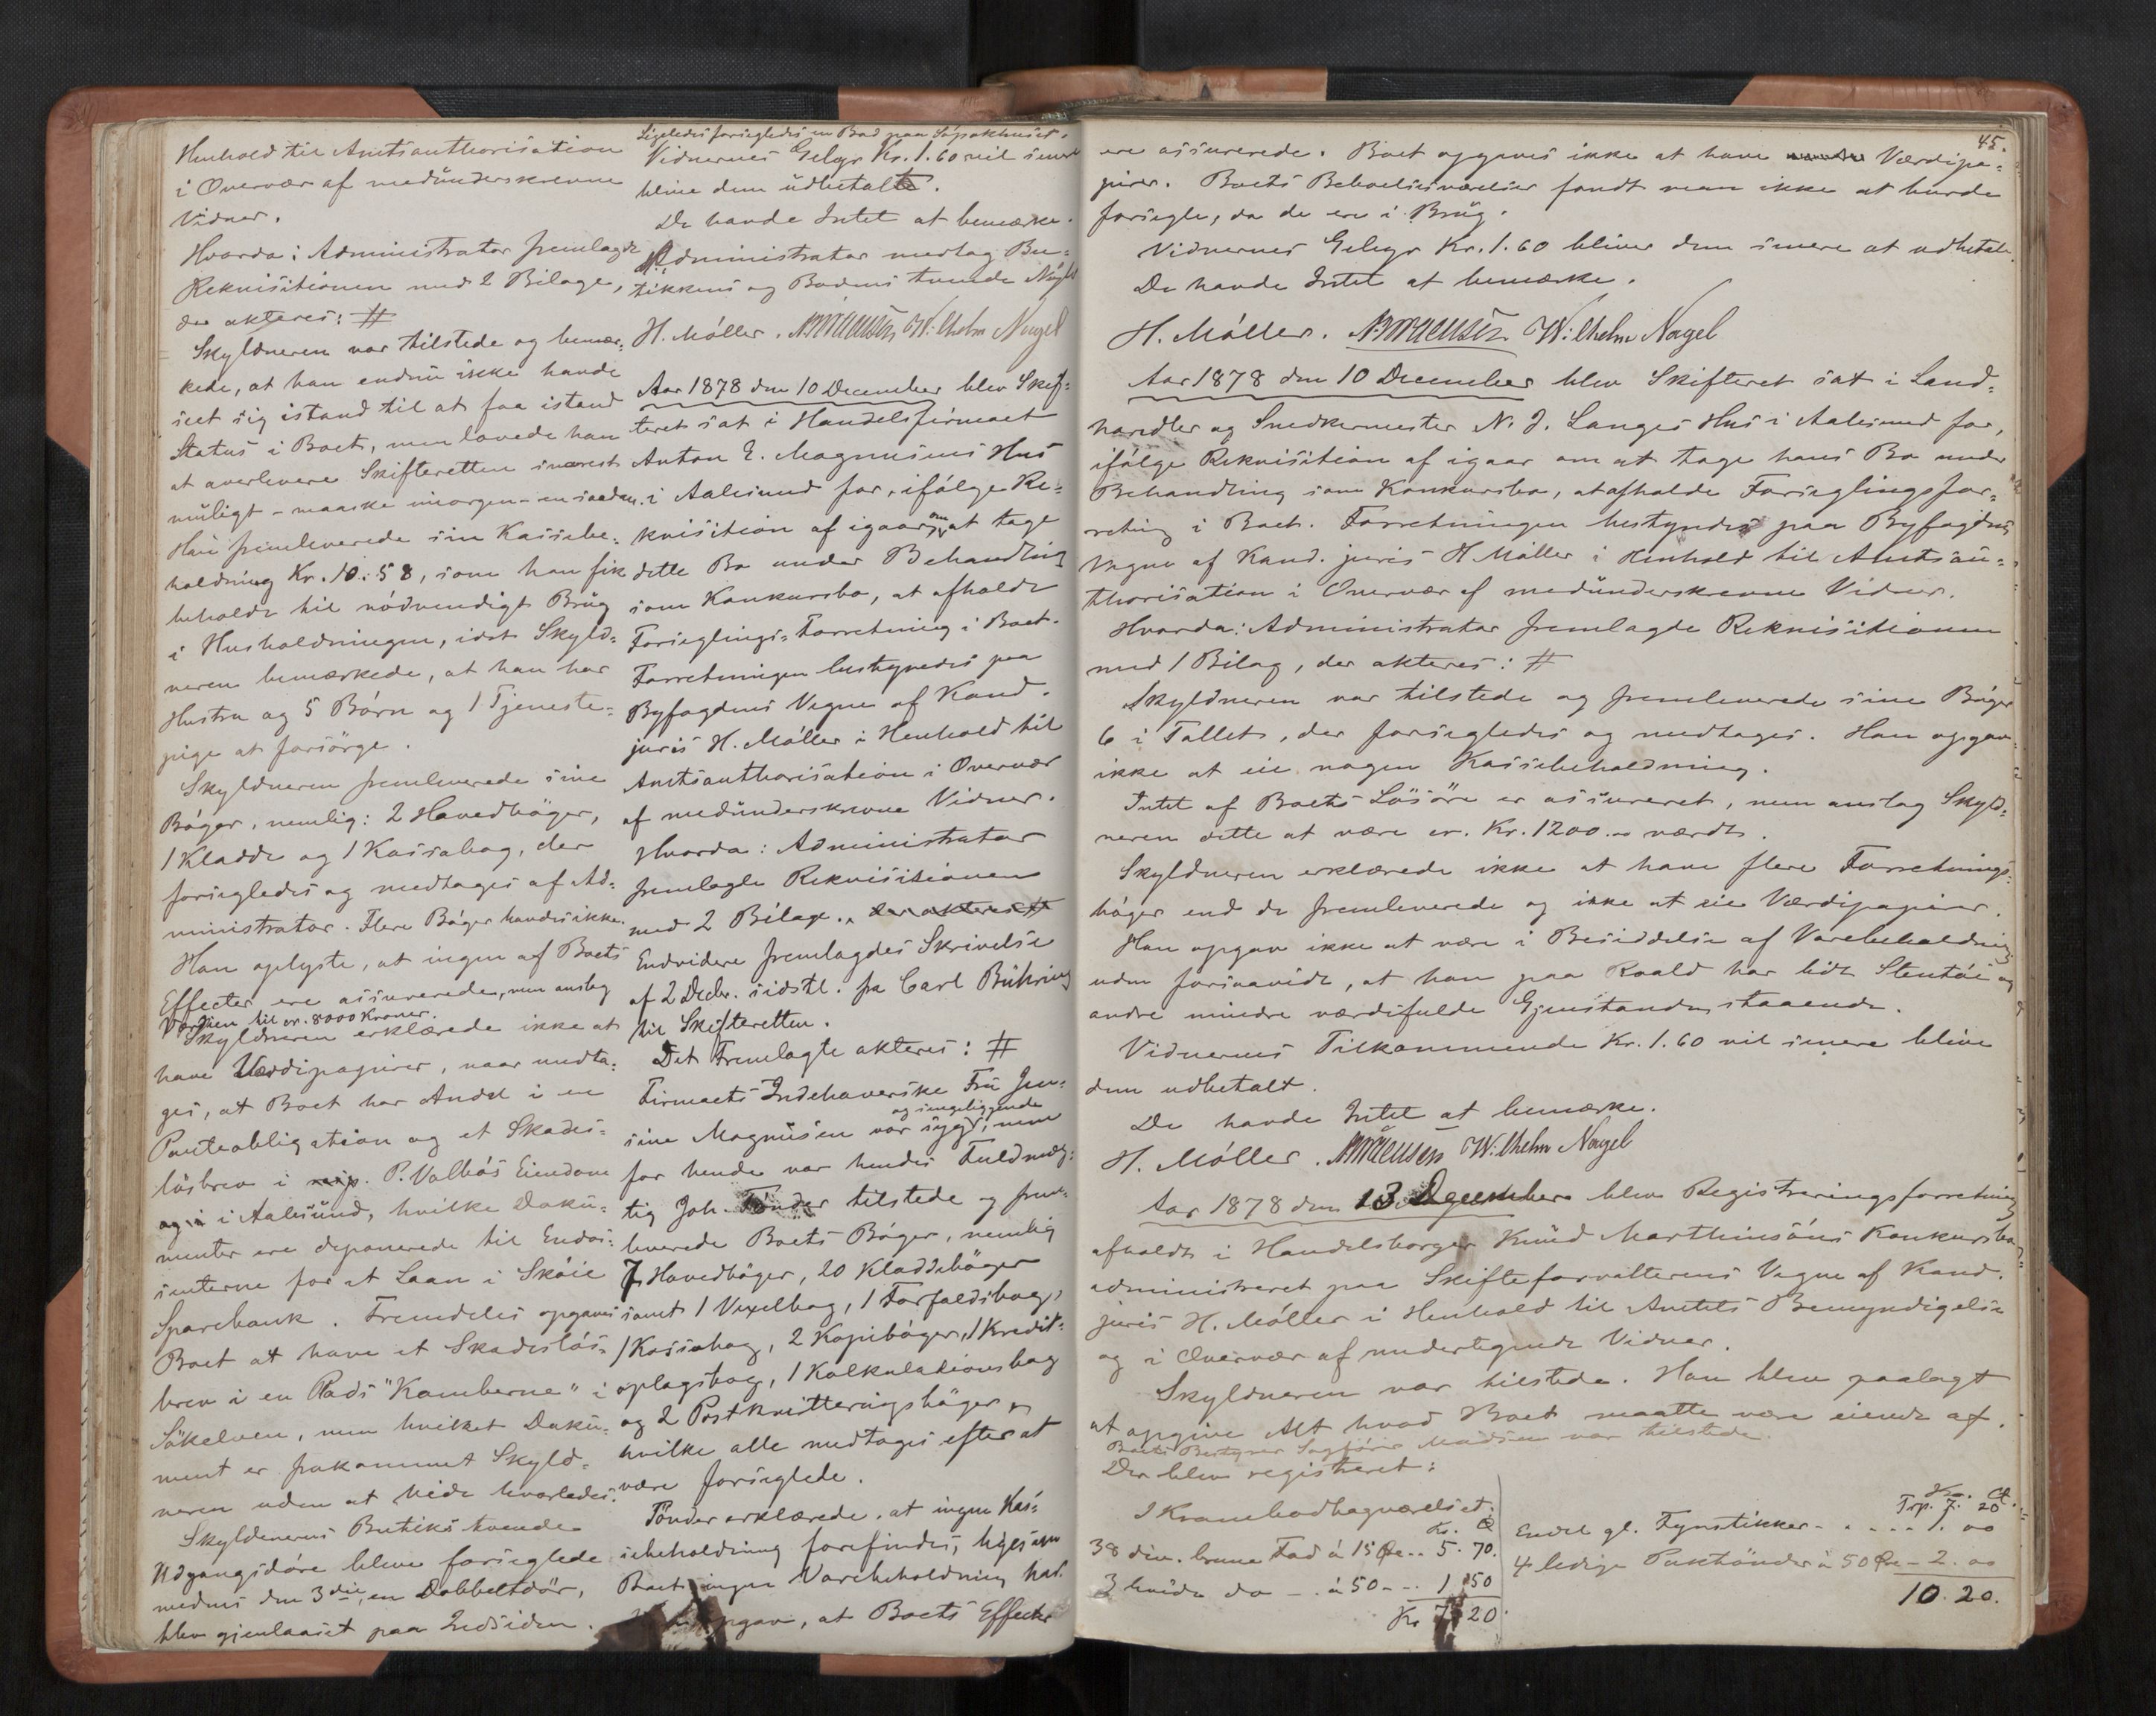 Henhold til Amtsauthorisation
i Overvær af medünderskrevne
Vidner.
Hvorda: Administrator fremlagde
Rekvisitionen med 2 Bilage,
der akteres: #
Skyldneren var tilstede og bemær-
kede, at han endnü ikke havde
seet sig istand til at faa istand
Status i Boet, men lovede han
at overlevere Skifteretten snarest
müligt - maaske imorgen - en saadan.
Han fremleverede sin Kassebe-
holdning Kr. 10.58, som han fik
beholde til nödvendigt Brüg
i Husholdningen, idet Skyld-
neren bemærkede, at han har
Hustru og 5 Börn og 1 Tjeneste-
pige at forsörge.
Skyldneren fremleverede sine
Böger, nemlig: 2 Hovedböger,
1 Kladde og 1 Kassabog, der
forsegledes og medtages af Ad-
ministrator. Flere Böger havdes ikke.
Han oplyste, at ingen af Boets
Effecter ere assurerede, men anslog
Værdien til cr. 8000 Kroner.
Skyldneren erklærede ikke at
have Værdipapirer, naar undta-
ges, at Boet har Andel i en
Panteobligation og et Skades-
lösbrev i P. Valbös Eiendom
i Aalesünd, hvilke Doku-
menter ere deponerede til Endos-
senterne for et Laan i Sköie
Sparebank. Fremdeles opgaves
Boet at have et Skadeslös-
brev i en Plads "Kamberne" i
Sökelven, men hvilket Doku-
ment er frakommet Skyld-
neren uden at vide hvorledes.
Skyldnerens Butiks tvende
Udgangsdöre bleve forseglede
medens den 3die, en Dobbeltdör,
blev gjenlaaset paa Indsiden.
Ligeledes forsegledes en Bod paa Söpakhuset.
Vidnernes Gebyr Kr. 1.60 vil senere
blive dem üdbetalte.
De havde Intet at bemærke.
Administrator modtog Bu-
tikkens og Bodens tvende Nögler
H. Möller. Wilhelm Nagel
Aar 1878 den 10 December blev Skif-
teret sat i Handelsfirmaet
Anton E. Magnusens Hus
i Aalesund for, ifölge Re-
kvisition af igaar, om at tage
dette Bo under Behandling
som Konkursbo, at afholde
Forseglings-Forretning i Boet.
Forretningen bestyredes paa
Byfogdens Vegne af Kand.
juris H. Möller i Henhold til
Amtsauthorisation i Overvær
af medünderskrevne Vidner.
Hvorda: Administrator
fremlagde Rekvisitionen
med 2 Bilage, der akteres #
Endvidere fremlagdes Skrivelse
af 2 Decbr. sidstl. fra Carl Bühring
til Skifteretten.
Det Fremlagte akteres: #
Firmaets Indehaverske Frü Jen-
og sengeliggende
sine Magnüsen var syg, men
for hende var hendes Fuldmæg-
tig Joh. Tönder tilstede og frem-
leverede Boets Böger, nemlig
7 Hovedböger, 20 Kladdeböger
samt 1 Vexelbog, 1 Forfaldsbog,
1 Kassabog, 2 Kopibøger, 1 Kredit-
oplagsbog, 1 Kalkulationsbog
og 2 Postkvitteringsböger,
hvilke alle medtages efter at
være forseglede.
Tönder erklærede, at ingen Kas-
sebeholdning forefindes, ligesom
Boet ingen Varebeholdning har.
opgav, at Boets Effecter
45.
ere assurerede. Boet opgaves ikke at have Værdipa-
pirer. Boets Beboelsesværelser fandt man ikke at burde
forsegle, da de ere i Brüg.
Vidnernes Gebyr Kr. 1.60 bliver dem senere at udbetale.
De havde Intet at bemærke.
H. Möller. Wilhelm Nagel
Aar 1878 den 10 December blev Skifteret sat i Land-
handler og Snedkermester N. J. Langes Hus i Aalesund for,
ifölge Rekvisition af igaar om at tage hans Bo under
Behandling som Konkursbo, at afholde Forseglingsfor-
retning i Boet. Forretningen bestyredes paa Byfogdens
Vegne af Kand. juris H. Möller i Henhold til Amtsau-
thorisation i Overvær af medünderskrevne Vidner.
Hvorda: Administrator fremlagde Rekvisitionen
med 1 Bilag, der akteres: #
Skyldneren var tilstede og fremleverede sine Böger
6 i Tallet, der forsegledes og medtages. Han opgav
ikke at eie nogen Kassebeholdning.
Intet af Boets Lösöre er assureret, men anslog Skyld-
neren dette at være cr. Kr. 1200.00 værdt.
Skyldneren erklærede ikke at have flere Forretnings-
böger end de fremleverede og ikke at eie Værdipapirer.
Han opgav ikke at være i Besiddelse af Varebeholdning
uden forsaavidt, at han paa Roald har lidt Stentöi og
andre mindre værdifulde Gjenstande staaende.
Vidnernes Tilkommende Kr. 1.60 vil senere blive
dem udbetalt.
De havde Intet at bemærke.
H. Möller. Wilhelm Nagel
Aar 1878 den 13 December blev Registreringsforretning
afholdt i Handelsborger Knüd Marthinsöns Konkursbo
administreret paa Skifteforvalterens Vegne af Kand.
juris H. Möller i Henhold til Amtets Bemyndigelse
og i Overvær af undertegnede Vidner.
Skyldneren var tilstede. Han blev paalagt
at opgive Alt hvad Boet maatte være eiende af.
Boets Bestyrer Sagförer Madsen var tilstede.
Der blev registreret:
I Krambodbagværelset:
Kr. Ø
38 div. brune Fad à 15 Øre .. 5. 70.
3 hvide do - à 50 - .. 1. 50
Kr 7. 20.
Kr. Ø.
Trp. 7. 20
Endel gl. Fyrstikker - . . . . 1. 00
4 ledige Paktönder à 50 Øre - 2. 00
10. 20.